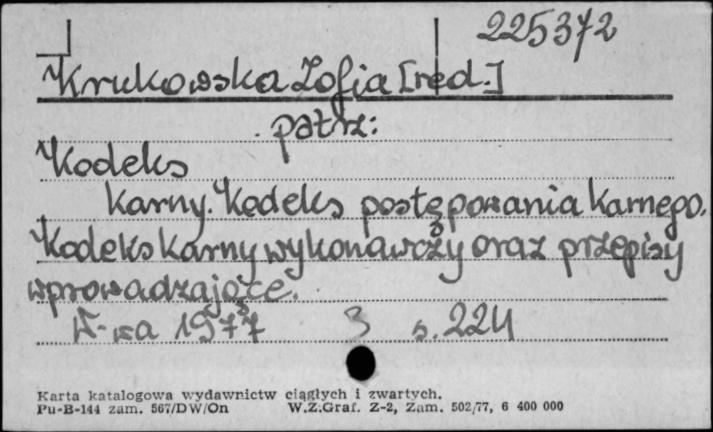 225372
Krukowska Zofia [red.]
patrz:
Kodeks
karny. Kodeks postępowania karnego.
Kodeks karny wykonawczy oraz przepisy
wprowadzające.
W-wa 1977 3 s. 224
Karta katalogowa wydawnictw ciągłych i zwartych.
Pu-B-144 zam. 567/DW/On W.Z.Graf. Z-2, Zam. 502/77, 6 400 000